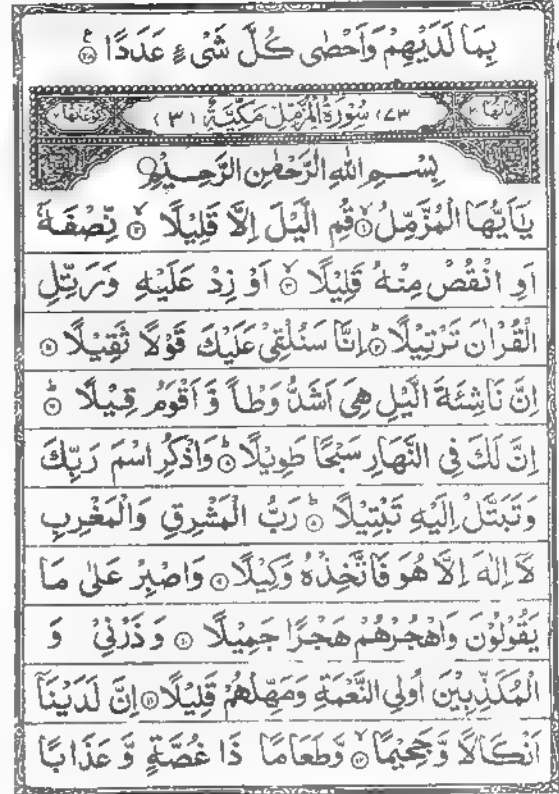 بِمَا لَدَيْهِمْ وَاَحْصٰى كُلَّ شَىْءٍ عَدَدًا ۝۲۸ ع
اٰيَاتُهَا ۲۰ ﴿۷۳﴾ سُوْرَةُ الْمُزَّمِّلِ مَكِّيَّةٌ ﴿۳﴾ رُكُوْعَاتُهَا ۲
بِسْمِ اللهِ الرَّحْمٰنِ الرَّحِيْمِ
يٰۤاَيُّهَا الْمُزَّمِّلُ ۝۱ قُمِ الَّيْلَ اِلَّا قَلِيْلًا ۝۲ نِّصْفَهٗۤ
اَوِ انْقُصْ مِنْهُ قَلِيْلًا ۝۳ اَوْ زِدْ عَلَيْهِ وَرَتِّلِ
الْقُرْاٰنَ تَرْتِيْلًا ۝۴ اِنَّا سَنُلْقِىْ عَلَيْكَ قَوْلًا ثَقِيْلًا ۝۵
اِنَّ نَاشِئَةَ الَّيْلِ هِىَ اَشَدُّ وَطْاً وَّ اَقْوَمُ قِيْلًا ۝۶
اِنَّ لَكَ فِى النَّهَارِ سَبْحًا طَوِيْلًا ۝۷ وَاذْكُرِ اسْمَ رَبِّكَ
وَتَبَتَّلْ اِلَيْهِ تَبْتِيْلًا ۝۸ رَبُّ الْمَشْرِقِ وَالْمَغْرِبِ
لَاۤ اِلٰهَ اِلَّا هُوَ فَاتَّخِذْهُ وَكِيْلًا ۝۹ وَاصْبِرْ عَلٰى مَا
يَقُوْلُوْنَ وَاهْجُرْهُمْ هَجْرًا جَمِيْلًا ۝۱۰ وَذَرْنِىْ وَ
الْمُكَذِّبِيْنَ اُولِى النَّعْمَةِ وَمَهِّلْهُمْ قَلِيْلًا ۝۱۱ اِنَّ لَدَيْنَاۤ
اَنْكَالًا وَّ جَحِيْمًا ۝۱۲ وَّطَعَامًا ذَا غُصَّةٍ وَّ عَذَابًا